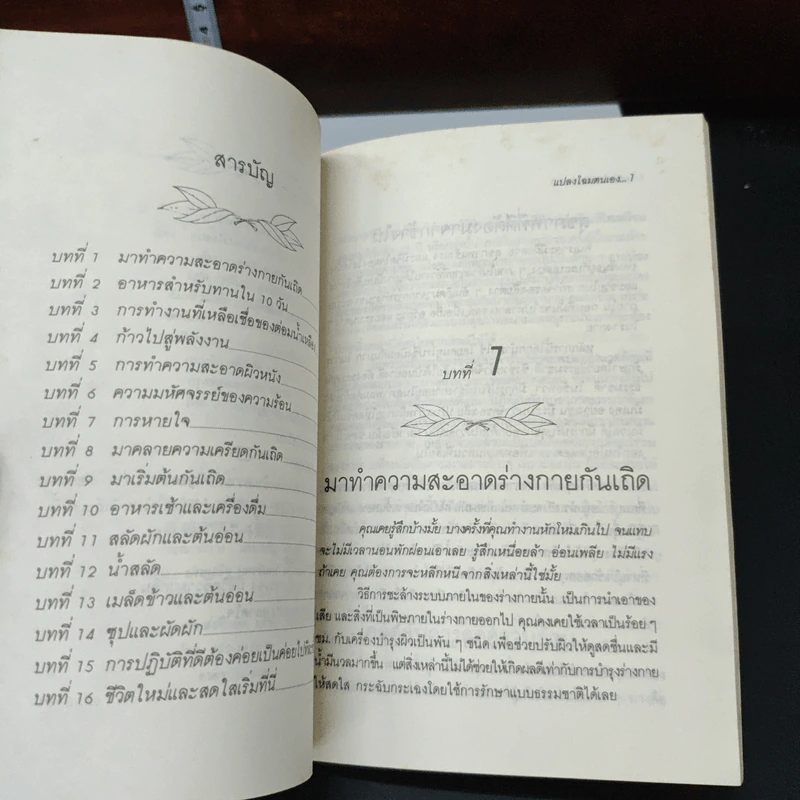 สารบัญ
บทที่ 1 มาทำความสะอาดร่างกายกันเถิด
บทที่ 2 อาหารสำหรับทานใน 10 วัน
บทที่ 3 การทำงานที่เหลือเชื่อของต่อมน้ำเหลือง
บทที่ 4 ก้าวไปสู่พลังงาน
บทที่ 5 การทำความสะอาดผิวหนัง
บทที่ 6 ความมหัศจรรย์ของความร้อน
บทที่ 7 การหายใจ
บทที่ 8 มาคลายความเครียดกันเถิด
บทที่ 9 มาเริ่มต้นกันเถิด
บทที่ 10 อาหารเช้าและเครื่องดื่ม
บทที่ 11 สลัดผักและต้นอ่อน
บทที่ 12 น้ำสลัด
บทที่ 13 เมล็ดข้าวและต้นอ่อน
บทที่ 14 ซุปและผัดผัก
บทที่ 15 การปฏิบัติที่ดีต้องค่อยเป็นค่อยไป
บทที่ 16 ชีวิตใหม่และสดใสเริ่มที่นี่
แปลงโฉมตนเอง... 1
บทที่ 1
มาทำความสะอาดร่างกายกันเถิด
คุณเคยรู้สึกบ้างมั้ย บางครั้งที่คุณทำงานหักโหมเกินไป จนแทบ
จะไม่มีเวลานอนพักผ่อนเอาเลย รู้สึกเหนื่อยล้า อ่อนเพลีย ไม่มีแรง
ถ้าเคย คุณต้องการจะหลีกหนีจากสิ่งเหล่านี้ใช่มั้ย
วิธีการชะล้างระบบภายในของร่างกายนั้น เป็นการนำเอาของ
เสีย และสิ่งที่เป็นพิษภายในร่างกายออกไป คุณคงเคยใช้เวลาเป็นร้อย ๆ
ชม. กับเครื่องบำรุงผิวเป็นพัน ๆ ชนิด เพื่อช่วยปรับผิวให้ดูสดชื่นและมี
น้ำมีนวลมากขึ้น แต่สิ่งเหล่านี้ไม่ได้ช่วยให้เกิดผลดีเท่ากับการบำรุงร่างกาย
ให้สดใส กระฉับกระเฉงโดยใช้การรักษาแบบธรรมชาติได้เลย